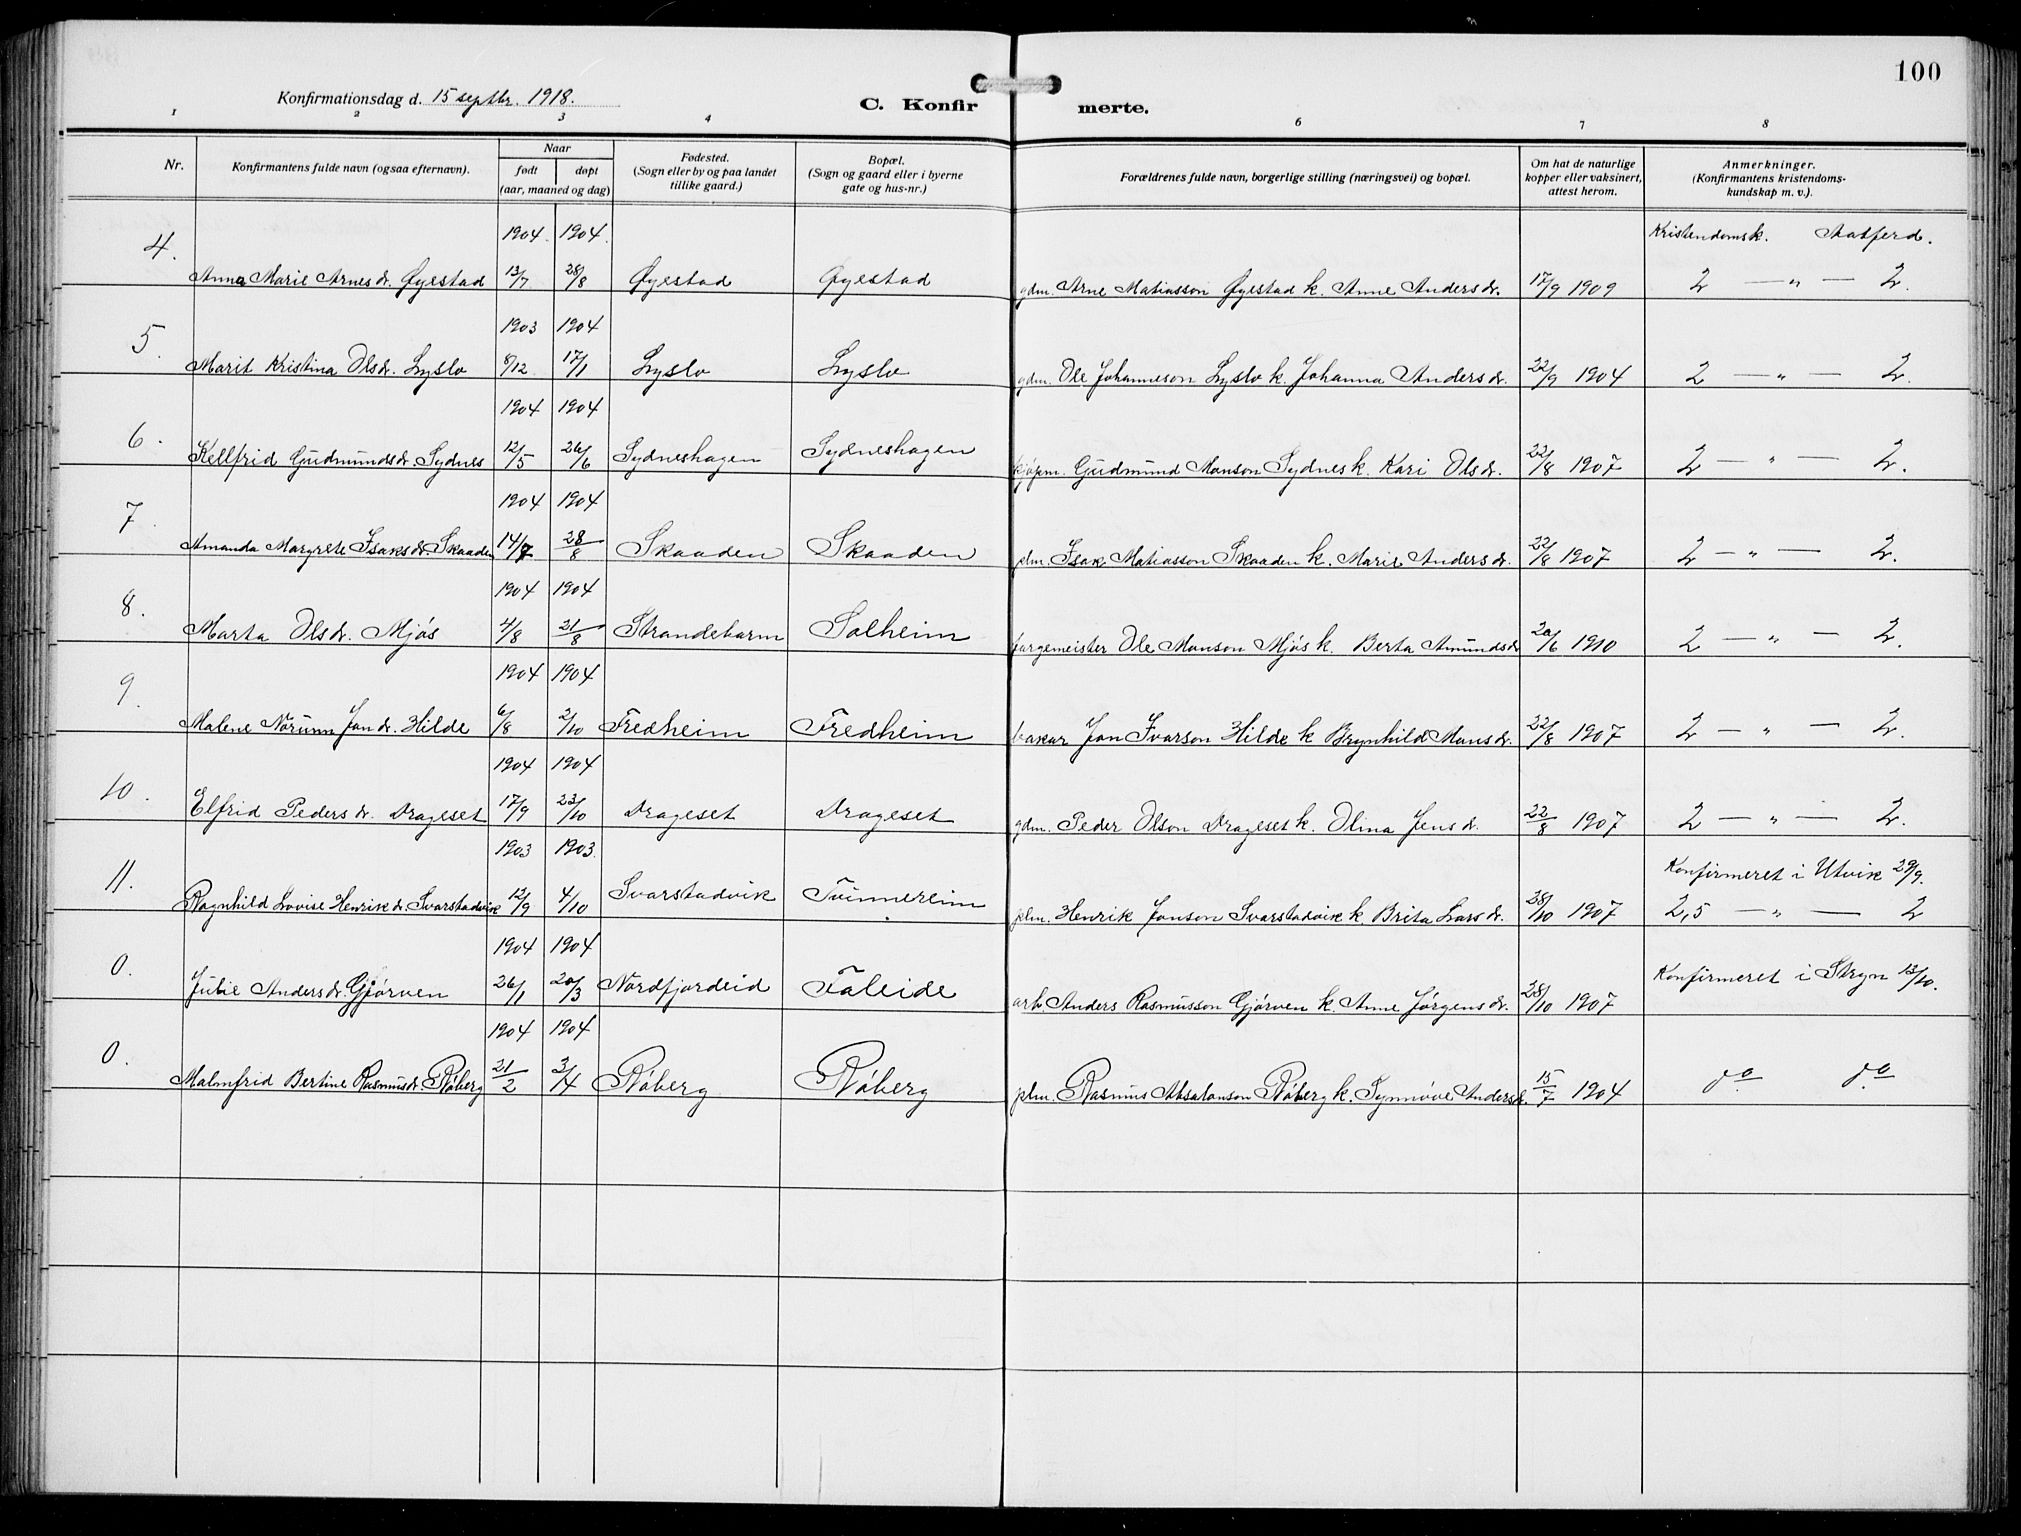 100
Konfirmationsdag d. 15 septbr. 1918.
C. Konfirmerte.
1 2 3 4 6 7 8
Nr. Konfirmantens fulde navn (ogsaa efternavn). Naar født døpt (aar, maaned og dag) Fødested. (Sogn eller by og paa landet tillike gaard.) Bopæl. (Sogn og gaard eller i byerne gate og hus-nr.) Forældrenes fulde navn, borgerlige stilling (næringsvei) og bopæl. Om hat de naturlige kopper eller vaksinert, attest herom. Anmerkninger. (Konfirmantens kristendomskundskap m. v.).
1904. 1904. Kristendomsk. Aatferd.
4. Anna Marie Arnesdr. Øyestad 13/7 28/8 Øyestad Øyestad gdm. Arne Matiasson Øyestad k. Anne Andersdr. 17/9 1909 2 — " — 2.
1903 1904
5. Marit Kristina Olsdr. Lyslo 8/12 17/1 Lyslo Lyslo gdm. Ole Johanneson Lyslo k. Johanna Andersdr. 22/9 1904 2 — " — 2.
1904 1904
6. Kellfrid Gudmundsdr. Sydnes 12/5 26/6 Sydneshagen Sydneshagen kjøpm. Gudmund Monson Sydnes k. Kari Olsdr. 22/8 1907 2 — " — 2.
1904 1904
7. Amanda Margrete Isaksdr. Skaaden 14/7 28/8 Skaaden Skaaden plm. Isak Matiasson Skaaden k. Marie Andersdr. 22/8 1907 2 — " — 2.
1904 1904
8. Marta Olsdr. Mjós 4/8 21/8 Strandebarm Solheim fargemeister Ole Monson Mjós k. Berta Amundsdr 20/6 1910 2 — " — 2.
1904 1904
9. Malene Norunn Jondr. Hilde 6/8 2/10 Fredheim Fredheim bakar Jon Ivarson Hilde k Brynhild Monsdr. 22/8 1907 2 — " — 2.
1904 1904
10. Elfrid Pedersdr. Drageset 17/9 23/10 Drageset Drageset gdm. Peder Olson Drageset k. Olina Jensdr. 22/8 1907 2 — " — 2.
1903 1903. Konfirmeret i Utvik 29/9.
11. Ragnhild Lovise Henrikdr. Svarstadvik 12/9 4/10 Svarstadvik Tvinnereim plm. Henrik Jonson Svarstadvik k. Brita Larsdr. 28/10 1907 2,5 — " — 2
1904 1904
0. Julie Andersdr. Gjørven 26/1 20/3 Nordfjordeid Faleide arb. Anders Rasmusson Gjørven k. Anne Jørgensdr. 28/10 1907 Konfirmeret i Stryn 13/10.
1904 1904
0. Malmfrid Bertine Rasmusdr. Róberg 21/2 3/4 Róberg Róberg plm. Rasmus Absalonson Róberg k. Synnøve Andersdr. 15/7 1904 do do